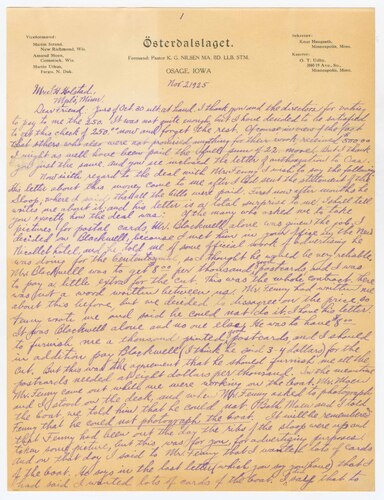 1
Viceformænd:
Martin Strand,
New Richmond, Wis.
Amund Moen,
Comstock, Wis.
Martin Ulvan,
Fargo, N. Dak.
Österdalslaget.
Formand: Pastor K. G. NILSEN MA, BD, LLB, STM.
OSAGE, IOWA
Sekretær:
Knut Haugseth,
Minneapolis, Minn.
Kasserer:
O. T. Urlby,
Minneapolis, Minn.
Nov 2 1925
Mrs. W. Holsted.
Mpls. Minn
Dear Friend: Yours of Oct 30 at hand. I thank you and the directors for voting
to pay to me the 250. It was not quite enough, but I have decided to be satisfied
to get this check of 250.00 now and forget the rest. Of course in view of the fact
that others who also were not promised anything for their work received 5000.00
I might as well have been paid the paltry sum of 28 more. But I thank
you just the same. And you see inclosed the letter of authorization to
Now with regard to the deal with Mr Fenny I wish to say the following
His letter about this money came to me after I had sent the different
sloop, where I said that all the bills were paid. First now after months he
writes me about it, and his letter is a total surprise to me. I shall tell
you exactly how the deal was: Of the many who asked me to take
pictures for postal cards Mr. Blackwell alone was given the job. I
decided on Blackwell, because
hotel, and he told me some official work of advertising he
was doing for the Centennial, so I thought he would be very reliable.
Mr Blackwell was to get 8.00 per thousand postcards and I was
to pay a little extra for the cut. This was the whole contract, there
was not a word written between us. Mr Fenny had written me
about this before but we decided to disagree on the price as
Fenny wrote me and said he could not do it. I have his letter.
It was Blackwell alone and no one else. He was to have 8.00
to furnish me a thousand printed postcards and I should
in addition pay Blackwell (I think he said 3-4 dollars) for the
cut. But this was the agreement that he should furnish me all the
postcards needed at eight dollars per thousand. In the meantime
Mr. Fenny came out while we were working on the boat. Mr. Moen
and I stood on the deck, and when Mr Fenny asked to photograph
the boat we told him that he could not. (Both Moen and I told
Fenny that he could not photograph the boat. It will be remembered
that Fenny had been out the day the ribs of the sloop were up and
taken some picture, but this was for you, for advertising purposes.
And on that day I said to Mr Fenny that I wanted lots of cards
of the boat. So says in the last letter (which you say you have) that I
had said I wanted lots of cards of the boat. I said that to